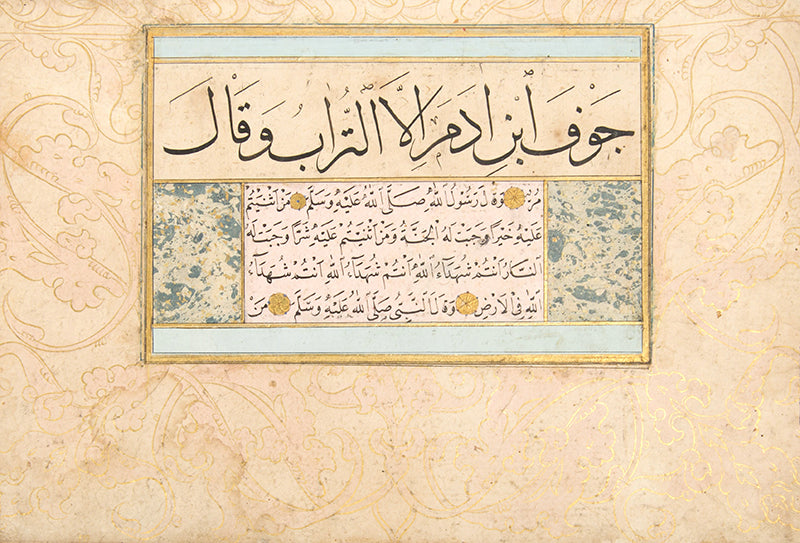 جَوْفَ ابْنِ اٰدَمَ اِلَّا التُّرَابُ وَقَالَ
وَقَالَ رَسُولُ اللهِ صَلَّى اللهُ عَلَيْهِ وَسَلَّمَ مَنْ اَثْنَيْتُمْ
عَلَيْهِ خَيْرًا وَجَبَتْ لَهُ الْجَنَّةُ وَمَنْ اَثْنَيْتُمْ عَلَيْهِ شَرًّا وَجَبَتْ لَهُ
النَّارُ اَنْتُمْ شُهَدَاءُ اللهِ اَنْتُمْ شُهَدَاءُ اللهِ اَنْتُمْ شُهَدَاءُ
اللهِ فِي الْاَرْضِ وَقَالَ النَّبِيُّ صَلَّى اللهُ عَلَيْهِ وَسَلَّمَ مَنْ